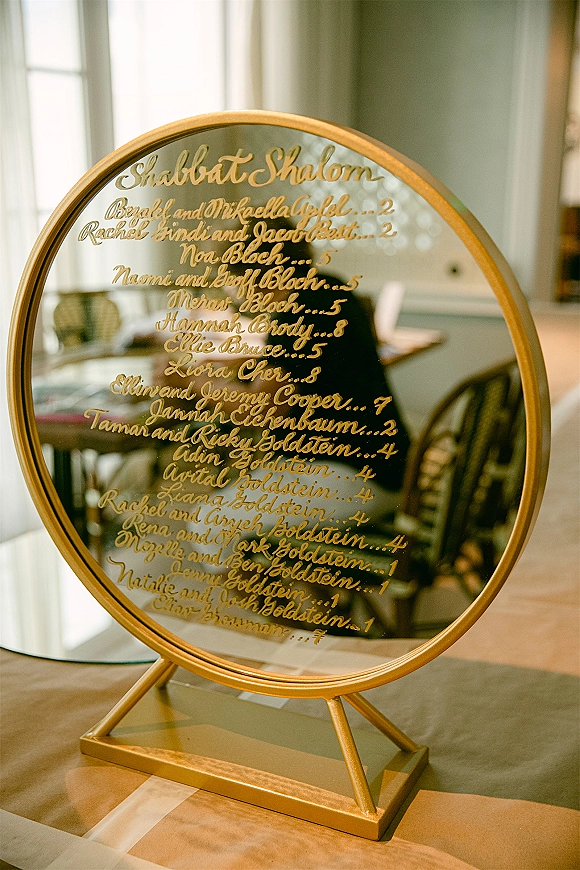 Shabbat Shalom
Bezalel and Mikaella Apfel...2
Rachel Gindi and Jacob Best...2
Noa Bloch...5
Naomi and Geoff Bloch...5
Merav Bloch...5
Hannah Brody...8
Ellie Bruce...5
Liora Cher...8
Ellin and Jeremy Cooper...7
Jannah Eichenbaum...2
Tamar and Ricky Goldstein...4
Adin Goldstein...4
Avital Goldstein...4
Liana Goldstein...4
Rachel and Aryeh Goldstein...4
Rena and Mark Goldstein...1
Mozelle and Ben Goldstein...1
Jenny Goldstein...1
Natalie and Josh Goldstein...1
Grossman...7